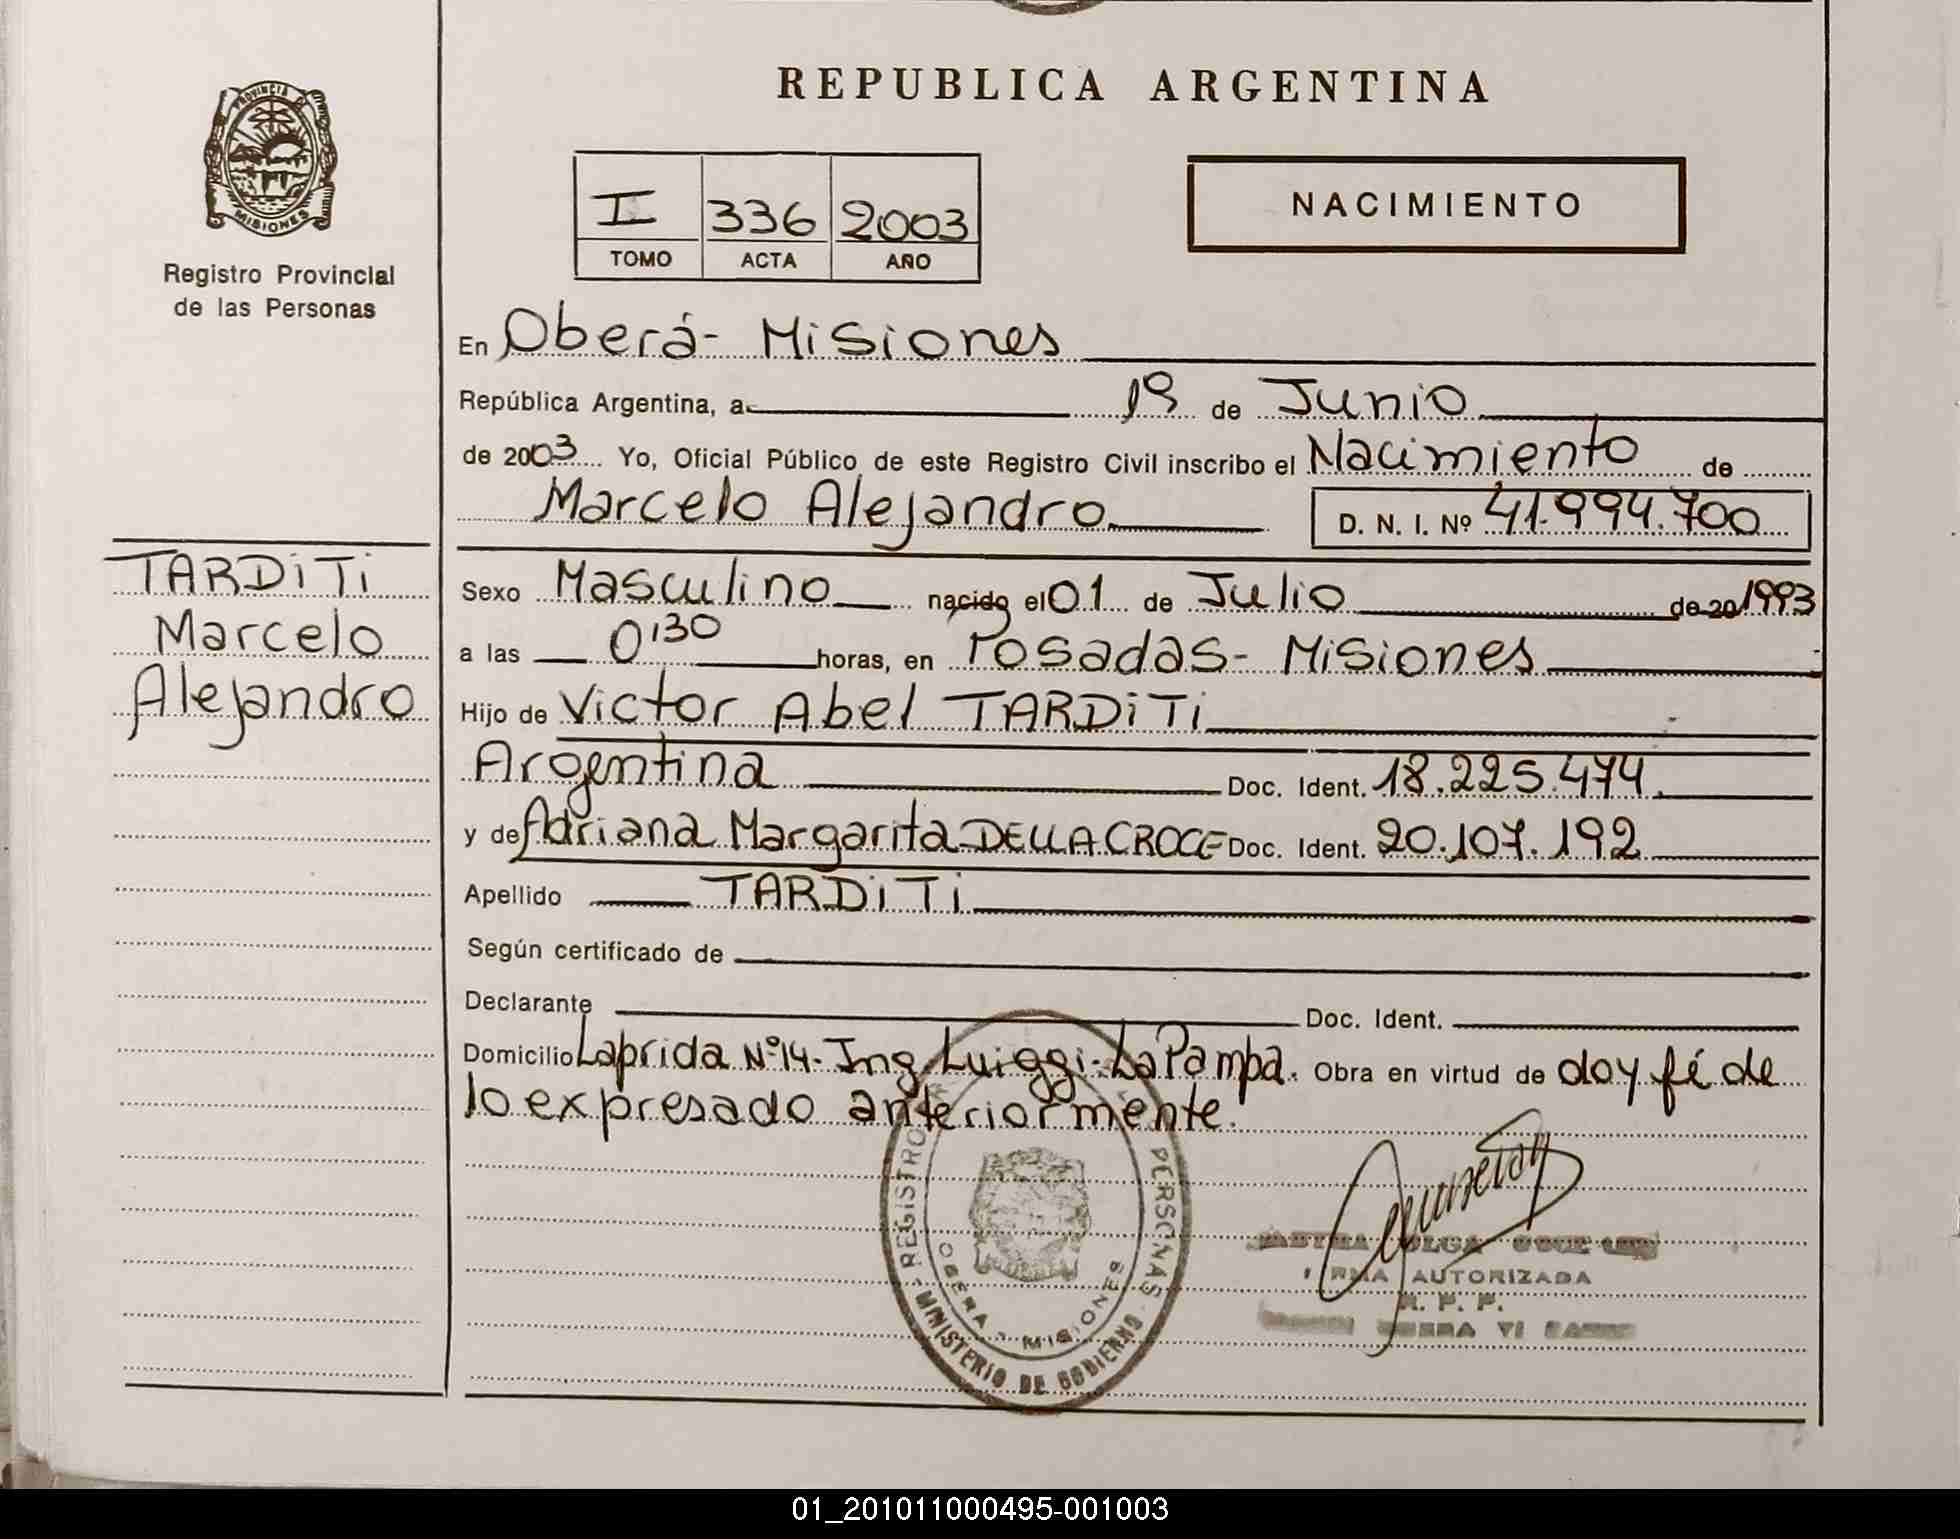 REPUBLICA ARGENTINA
PROVINCIA D
MISIONES
Registro Provincial
de las Personas
I 336 2003
TOMO ACTA AÑO
NACIMIENTO
En Oberá- Misiones
República Argentina, a 19 de Junio
de 2003 Yo, Oficial Público de este Registro Civil inscribo el Nacimiento de
Marcelo Alejandro D. N. I. Nº 41.994.700
TARDiTi
Marcelo
Alejandro
Sexo Masculino nacido el 01 de Julio de 20 1993
a las 0'30 horas, en Posadas- Misiones
Hijo de Victor Abel TARDiTi
Argentina Doc. Ident. 18.225.474.
y de Adriana Margarita DELLA CROCE Doc. Ident. 20.107.192
Apellido TARDiTi
Según certificado de
Declarante Doc. Ident.
Domicilio Laprida Nº14- Ing. Luiggi- La Pampa. Obra en virtud de doy fé de
lo expresado anteriormente.
REGISTRO PERSONAS
OBERA - MISIONES
MINISTERIO DE GOBIERNO
OLGA
AUTORIZADA
R. P. P.
01_201011000495-001003